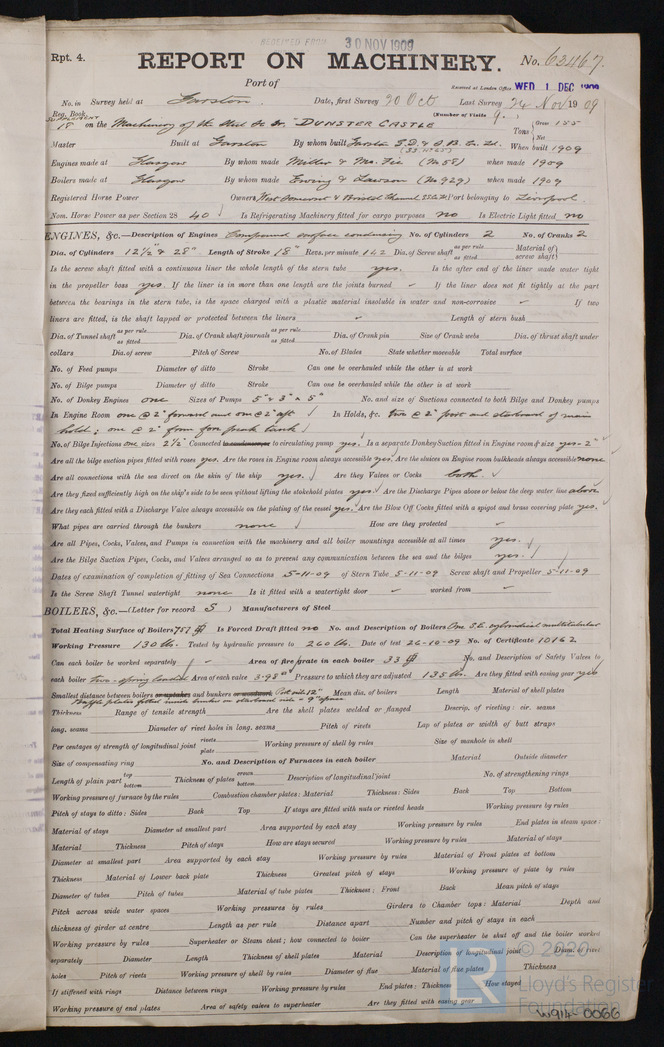 RECEIVED FROM
30 NOV 1909
Rpt. 4.
REPORT ON MACHINERY.
No. 63467.
Port of
Received at London Office WED 1 DEC 1909
No. in Survey held at Garston. Date, first Survey 20 Oct Last Survey 24 Nov 1909
Reg. Book.
(Number of Visits 9.)
18 on the Machinery of the Steel "DUNSTER CASTLE" Tons Gross 155 Net
Master Built at Garston By whom built Garston When built 1909
Engines made at Glasgow By whom made Miller & (No 58) when made 1909
Boilers made at Glasgow By whom made Ewing & Lawson (No 929) when made 1909
Registered Horse Power Owners West Somerset & Bristol Channel Port belonging to Liverpool
Nom. Horse Power as per Section 28 40 Is Refrigerating Machinery fitted for cargo purposes no Is Electric Light fitted no
ENGINES, &c.—Description of Engines Compound surface condensing No. of Cylinders 2 No. of Cranks 2
Dia. of Cylinders 12½" & 28" Length of Stroke 18" Revs. per minute 142 Dia. of Screw shaft as per rule as fitted Material of screw shaft
Is the screw shaft fitted with a continuous liner the whole length of the stern tube yes. Is the after end of the liner made water tight
in the propeller boss yes. If the liner is in more than one length are the joints burned If the liner does not fit tightly at the part
between the bearings in the stern tube, is the space charged with a plastic material insoluble in water and non-corrosive If two
liners are fitted, is the shaft lapped or protected between the liners Length of stern bush
Dia. of Tunnel shaft as per rule as fitted Dia. of Crank shaft journals as per rule as fitted Dia. of Crank pin Size of Crank webs Dia. of thrust shaft under
collars Dia. of screw Pitch of Screw No. of Blades State whether moveable Total surface
No. of Feed pumps Diameter of ditto Stroke Can one be overhauled while the other is at work
No. of Bilge pumps Diameter of ditto Stroke Can one be overhauled while the other is at work
No. of Donkey Engines one Sizes of Pumps 5" & 3" x 5" No. and size of Suctions connected to both Bilge and Donkey pumps
In Engine Room one @ 2" forward and one @ 2" aft In Holds, &c. two @ 2" port and starboard of main
hold; one @ 2" from fore peak tank
No. of Bilge Injections one sizes 2½" Connected to condenser or to circulating pump yes. Is a separate Donkey Suction fitted in Engine room & size yes-2"
Are all the bilge suction pipes fitted with roses yes. Are the roses in Engine room always accessible yes. Are the sluices on Engine room bulkheads always accessible none
Are all connections with the sea direct on the skin of the ship yes. Are they Valves or Cocks both.
Are they fixed sufficiently high on the ship's side to be seen without lifting the stokehold plates yes. Are the Discharge Pipes above or below the deep water line above
Are they each fitted with a Discharge Valve always accessible on the plating of the vessel yes. Are the Blow Off Cocks fitted with a spigot and brass covering plate yes.
What pipes are carried through the bunkers none How are they protected
Are all Pipes, Cocks, Valves, and Pumps in connection with the machinery and all boiler mountings accessible at all times yes.
Are the Bilge Suction Pipes, Cocks, and Valves arranged so as to prevent any communication between the sea and the bilges yes.
Dates of examination of completion of fitting of Sea Connections 5-11-09 of Stern Tube 5-11-09 Screw shaft and Propeller 5-11-09
Is the Screw Shaft Tunnel watertight none Is it fitted with a watertight door worked from
BOILERS, &c.—(Letter for record S) Manufacturers of Steel
Total Heating Surface of Boilers 757 Is Forced Draft fitted no No. and Description of Boilers One S.E. cylindrical multitubular
Working Pressure 130 lbs. Tested by hydraulic pressure to 260 lbs. Date of test 26-10-09 No. of Certificate 10162
Can each boiler be worked separately Area of fire grate in each boiler 33 No. and Description of Safety Valves to
each boiler two-spring loaded Area of each valve 3.98 Pressure to which they are adjusted 135 lbs. Are they fitted with easing gear yes
Smallest distance between boilers or uptakes and bunkers or woodwork 12" Mean dia. of boilers Length Material of shell plates
Baffle plates fitted inside bunker on starboard side = 9" space
Thickness Range of tensile strength Are the shell plates welded or flanged Descrip. of riveting: cir. seams
long. seams Diameter of rivet holes in long. seams Pitch of rivets Lap of plates or width of butt straps
Per centages of strength of longitudinal joint rivets plate Working pressure of shell by rules Size of manhole in shell
Size of compensating ring No. and Description of Furnaces in each boiler Material Outside diameter
Length of plain part top bottom Thickness of plates crown bottom Description of longitudinal joint No. of strengthening rings
Working pressure of furnace by the rules Combustion chamber plates: Material Thickness: Sides Back Top Bottom
Pitch of stays to ditto: Sides Back Top If stays are fitted with nuts or riveted heads Working pressure by rules
Material of stays Diameter at smallest part Area supported by each stay Working pressure by rules End plates in steam space:
Material Thickness Pitch of stays How are stays secured Working pressure by rules Material of stays
Diameter at smallest part Area supported by each stay Working pressure by rules Material of Front plates at bottom
Thickness Material of Lower back plate Thickness Greatest pitch of stays Working pressure of plate by rules
Diameter of tubes Pitch of tubes Material of tube plates Thickness: Front Back Mean pitch of stays
Pitch across wide water spaces Working pressures by rules Girders to Chamber tops: Material Depth and
thickness of girder at centre Length as per rule Distance apart Number and pitch of stays in each
Working pressure by rules Superheater or Steam chest; how connected to boiler Can the superheater be shut off and the boiler worked
separately Diameter Length Thickness of shell plates Material Description of longitudinal joint Diam. of rivet
holes Pitch of rivets Working pressure of shell by rules Diameter of flue Material of flue plates Thickness
If stiffened with rings Distance between rings Working pressure by rules End plates: Thickness How stayed
Working pressure of end plates Area of safety valves to superheater Are they fitted with easing gear
LR
© 2020
Lloyd's Register
Foundation
W914-0066